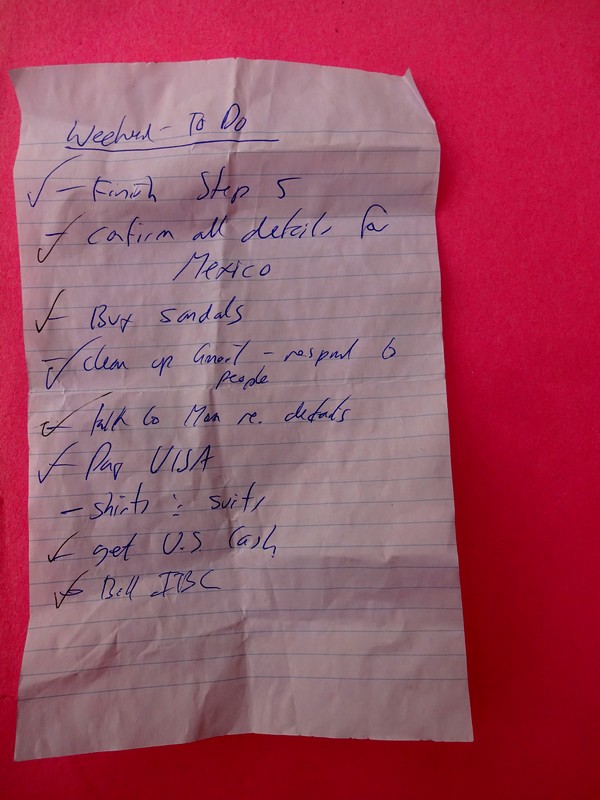 Weekend - To Do
✓ - Finish Step 5
✓ - Confirm all details for
Mexico
✓ - Buy sandals
✓ - clean up Gmail - respond to
people
✓ - talk to Mom re. details
✓ - Pay VISA
- shirts : suits
✓ - get U.S. Cash
✓ - Bill IIBC